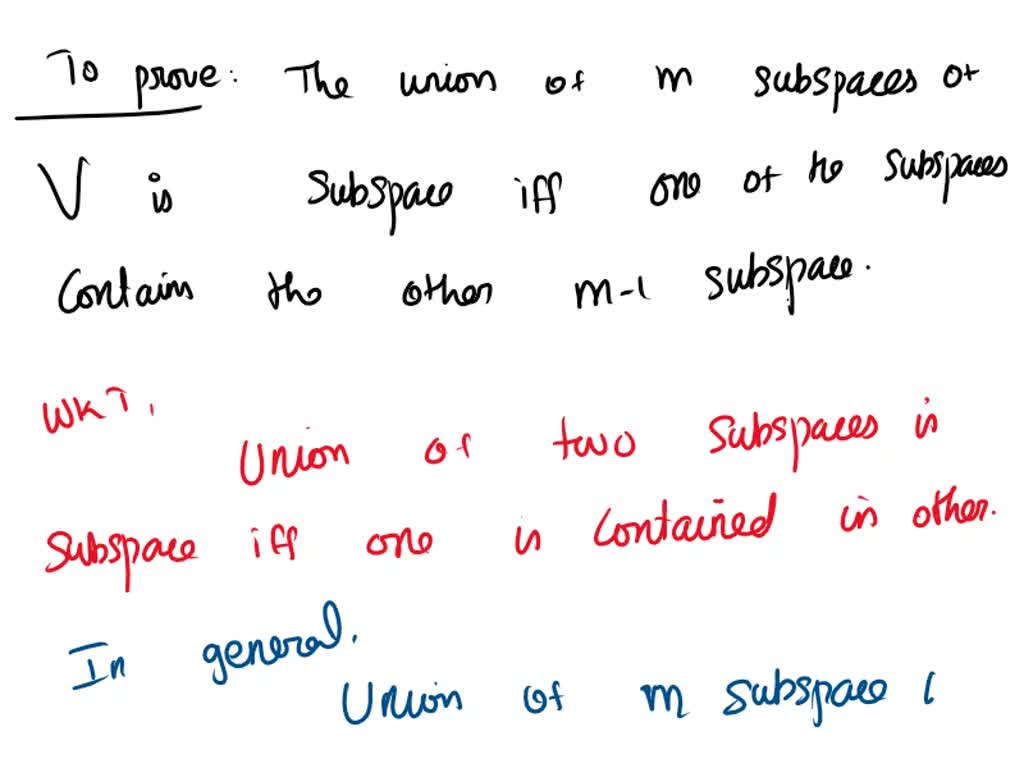 To prove: The union of m subspaces of
V is subspace iff one of the subspaces
Contains the other m-1 subspace.
WKT,
Union of two subspaces is
subspace iff one is contained in other.
In general.
Union of m subspace i